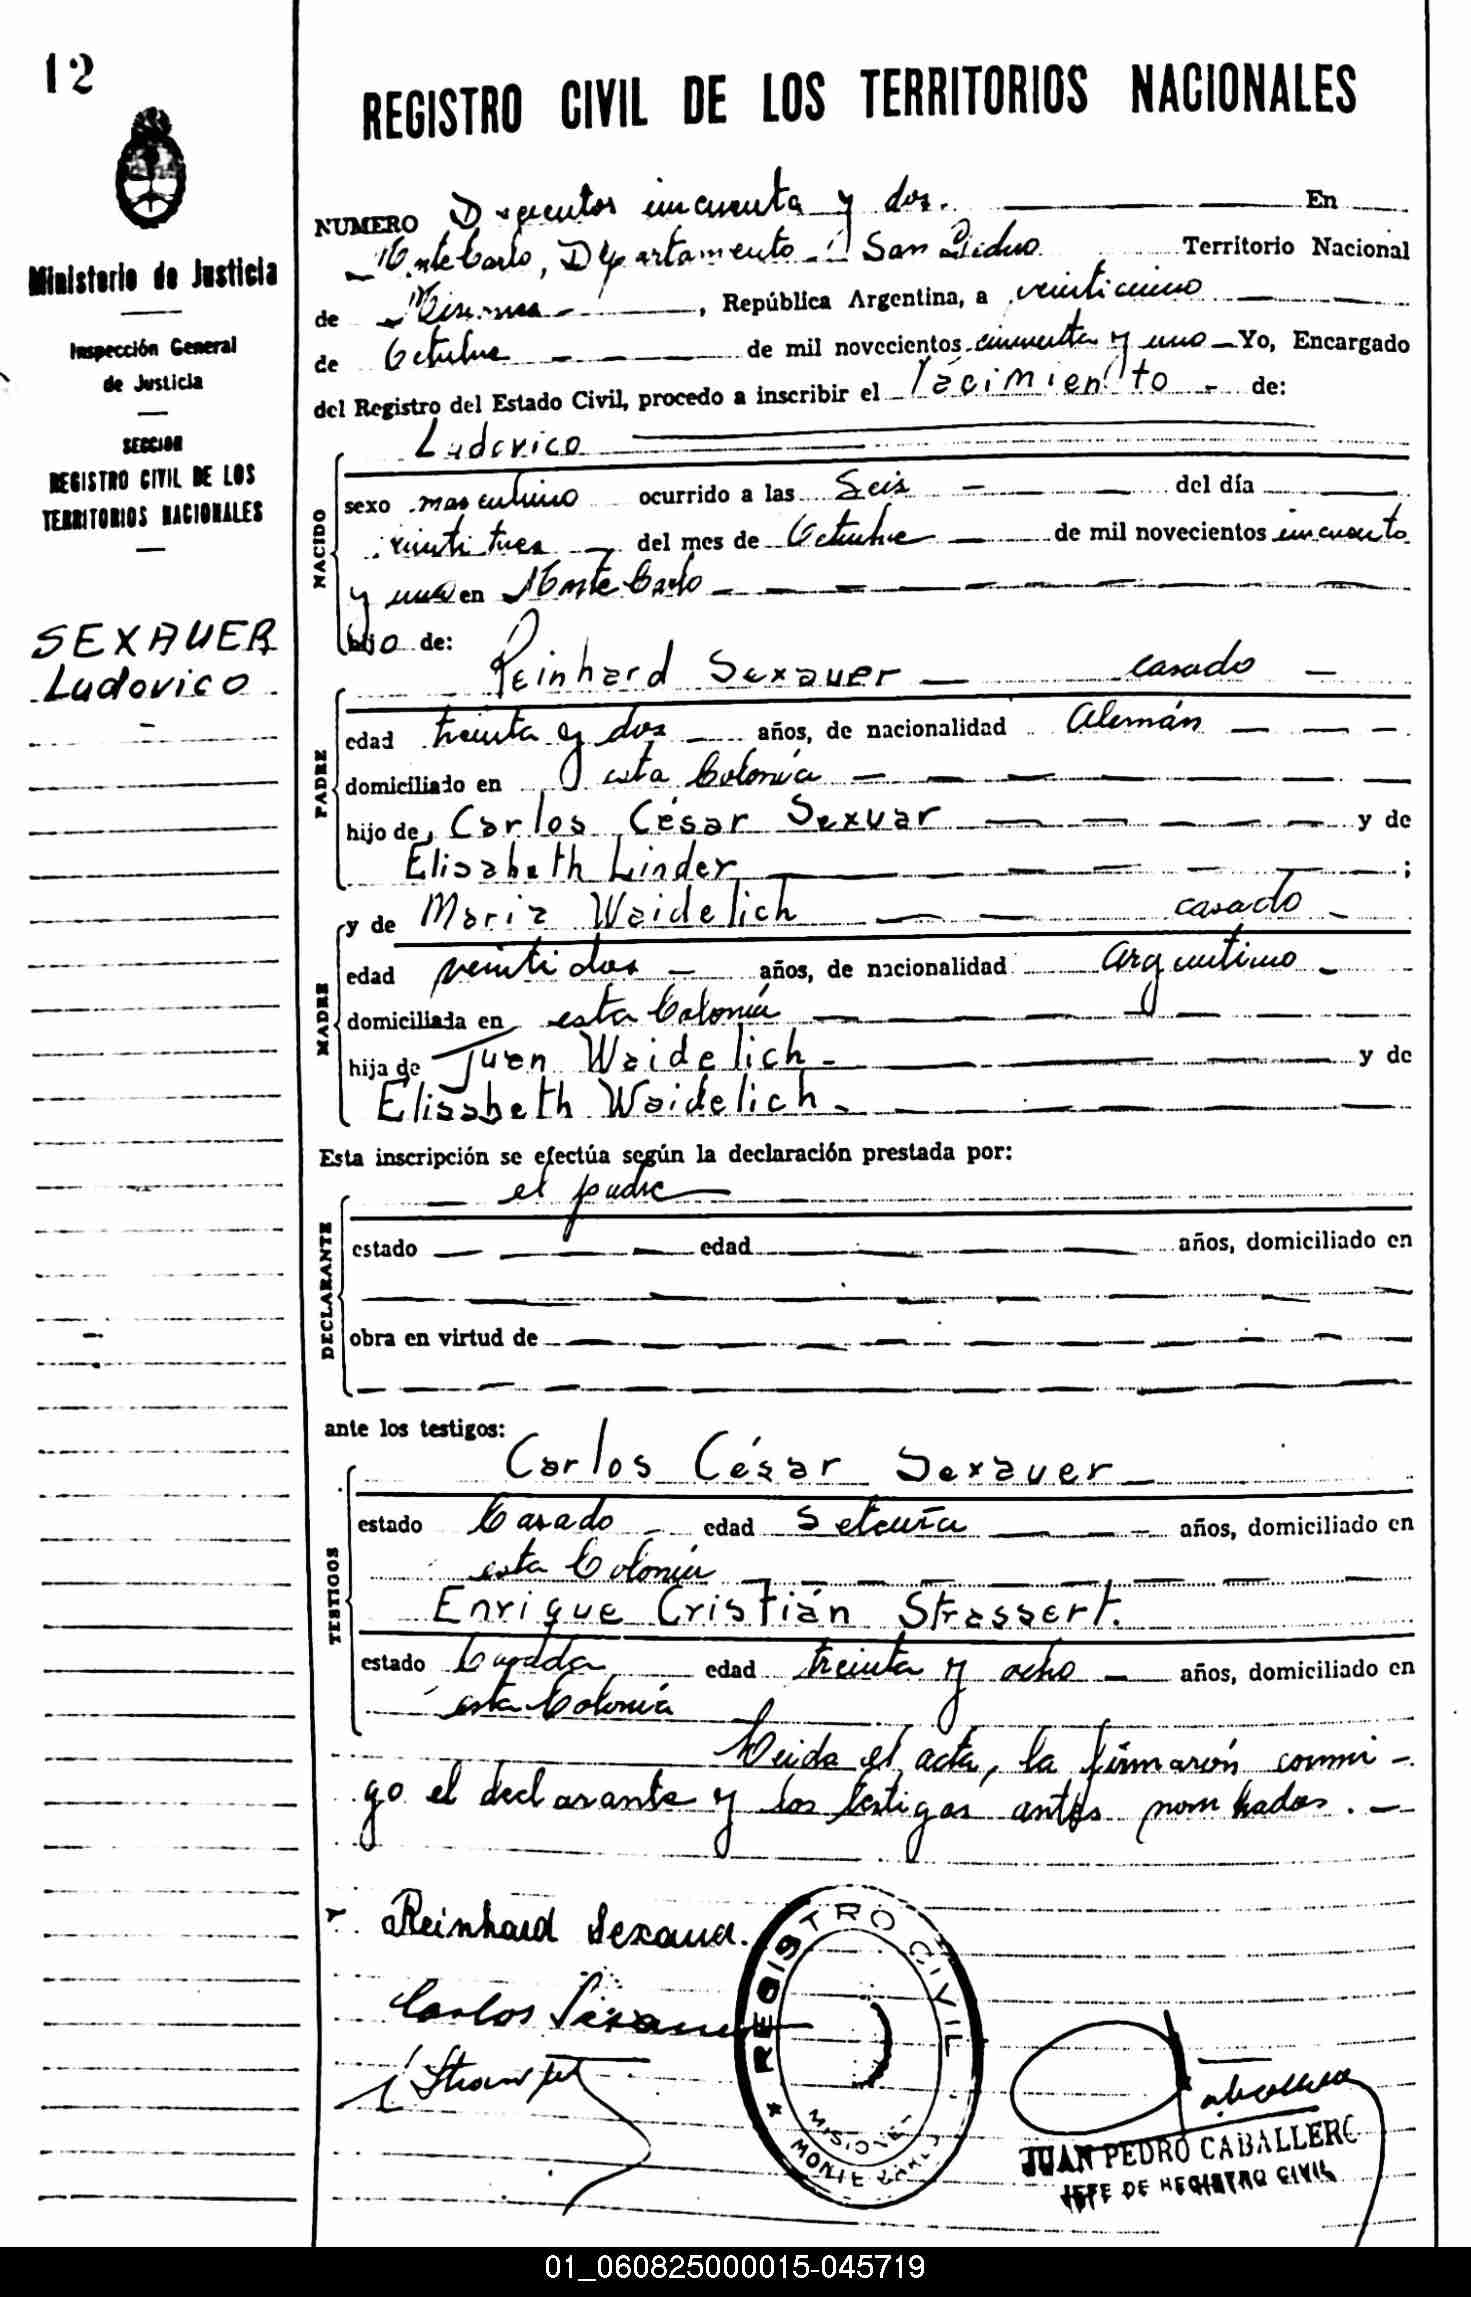 12
REGISTRO CIVIL DE LOS TERRITORIOS NACIONALES
Ministerio de Justicia
Inspección General
de Justicia
SECCION
REGISTRO CIVIL DE LOS
TERRITORIOS NACIONALES
SEXAUER
Ludovico
NUMERO Doscientos cincuenta y dos. En
Monte Carlo, Departamento San Pedro Territorio Nacional
de Misiones, República Argentina, a veinticinco
de Octubre de mil novecientos cincuenta y uno Yo, Encargado
del Registro del Estado Civil, procedo a inscribir el nacimiento de:
NACIDO
Ludovico
sexo masculino ocurrido a las Seis del día
veintitres del mes de Octubre de mil novecientos cincuenta
y uno en Monte Carlo
hijo de:
PADRE
Reinhard Sexauer casado
edad treinta y dos años, de nacionalidad Alemán
domiciliado en esta Colonia
hijo de Carlos César Sexuar y de
Elisabeth Linder ;
MADRE
y de Maria Waidelich casado
edad veintidos años, de nacionalidad Argentino
domiciliada en esta Colonia
hija de Juan Waidelich y de
Elisabeth Waidelich
Esta inscripción se efectúa según la declaración prestada por:
DECLARANTE
el padre
estado edad años, domiciliado en
obra en virtud de
ante los testigos:
TESTIGOS
Carlos César Sexauer
estado Casado edad Setenta años, domiciliado en
esta Colonia
Enrique Cristián Strassert.
estado Casado edad treinta y ocho años, domiciliado en
esta Colonia
Leida el acta, la firmarón conmi-
go el declarante y los testigos antes nombrados.
Reinhard Sexauer.
Carlos Sexauer
REGISTRO CIVIL
MISIONES
MONTE CARLO
JUAN PEDRO CABALLERO
JEFE DE REGISTRO CIVIL
01_060825000015-045719